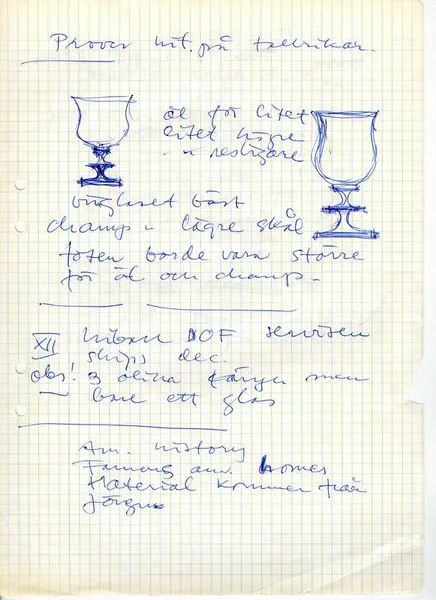 Prover hit. på tallrikar.
öl för litet
litet högre
- " - resligare
vinglaset bäst
champ - lägre skål
foten borde vara större
för öl och champ -
XII DOF servisen
ships dec.
obs! 3 olika färger men
bare ett glas
Am. history
Famous am. homes
Material kommer från
Jörgen